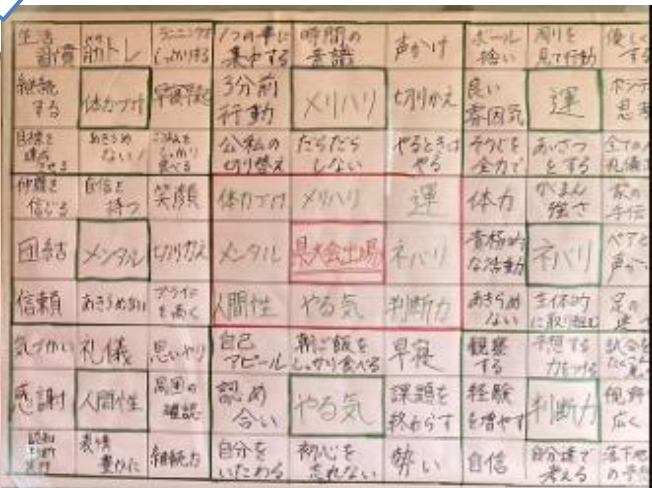 生活習慣 筋トレ ランニングをしっかりする 1つの事に集中する 時間の意識 声かけ ボール拾い 周りを見て行動 優しくする
継続する 体力づけ 早寝早起 3分前行動 メリハリ 切りかえ 良い雰囲気 運
目標を達成させる あきらめない! ごはんをしっかり食べる 公私の切り替え だらだらしない やるときはやる そうじを全力で あいさつをする 全ての人
仲間を信じる 自信を持つ 笑顔 体力づけ メリハリ 運 体力 がまん強さ 家の手伝
団結 メンタル 切りかえ メンタル 県大会出場 ネバリ 積極的な活動 ネバリ ペアと声か
信頼 あきらめない プライドを高く 人間性 やる気 判断力 あきらめない 主体的に取り組む 足の
気づかい 礼儀 思いやり 自己アピール 朝ご飯をしっかり食べる 早寝 観察する 予想する力をつける 試合をたくさん見
感謝 人間性 周囲の確認 認め合い やる気 課題を終わらす 経験を増やす 判断力 視野広く
表情豊かに 継続力 自分をいたわる 初心を忘れない 勢い 自信 自分達で考える 落下地の予